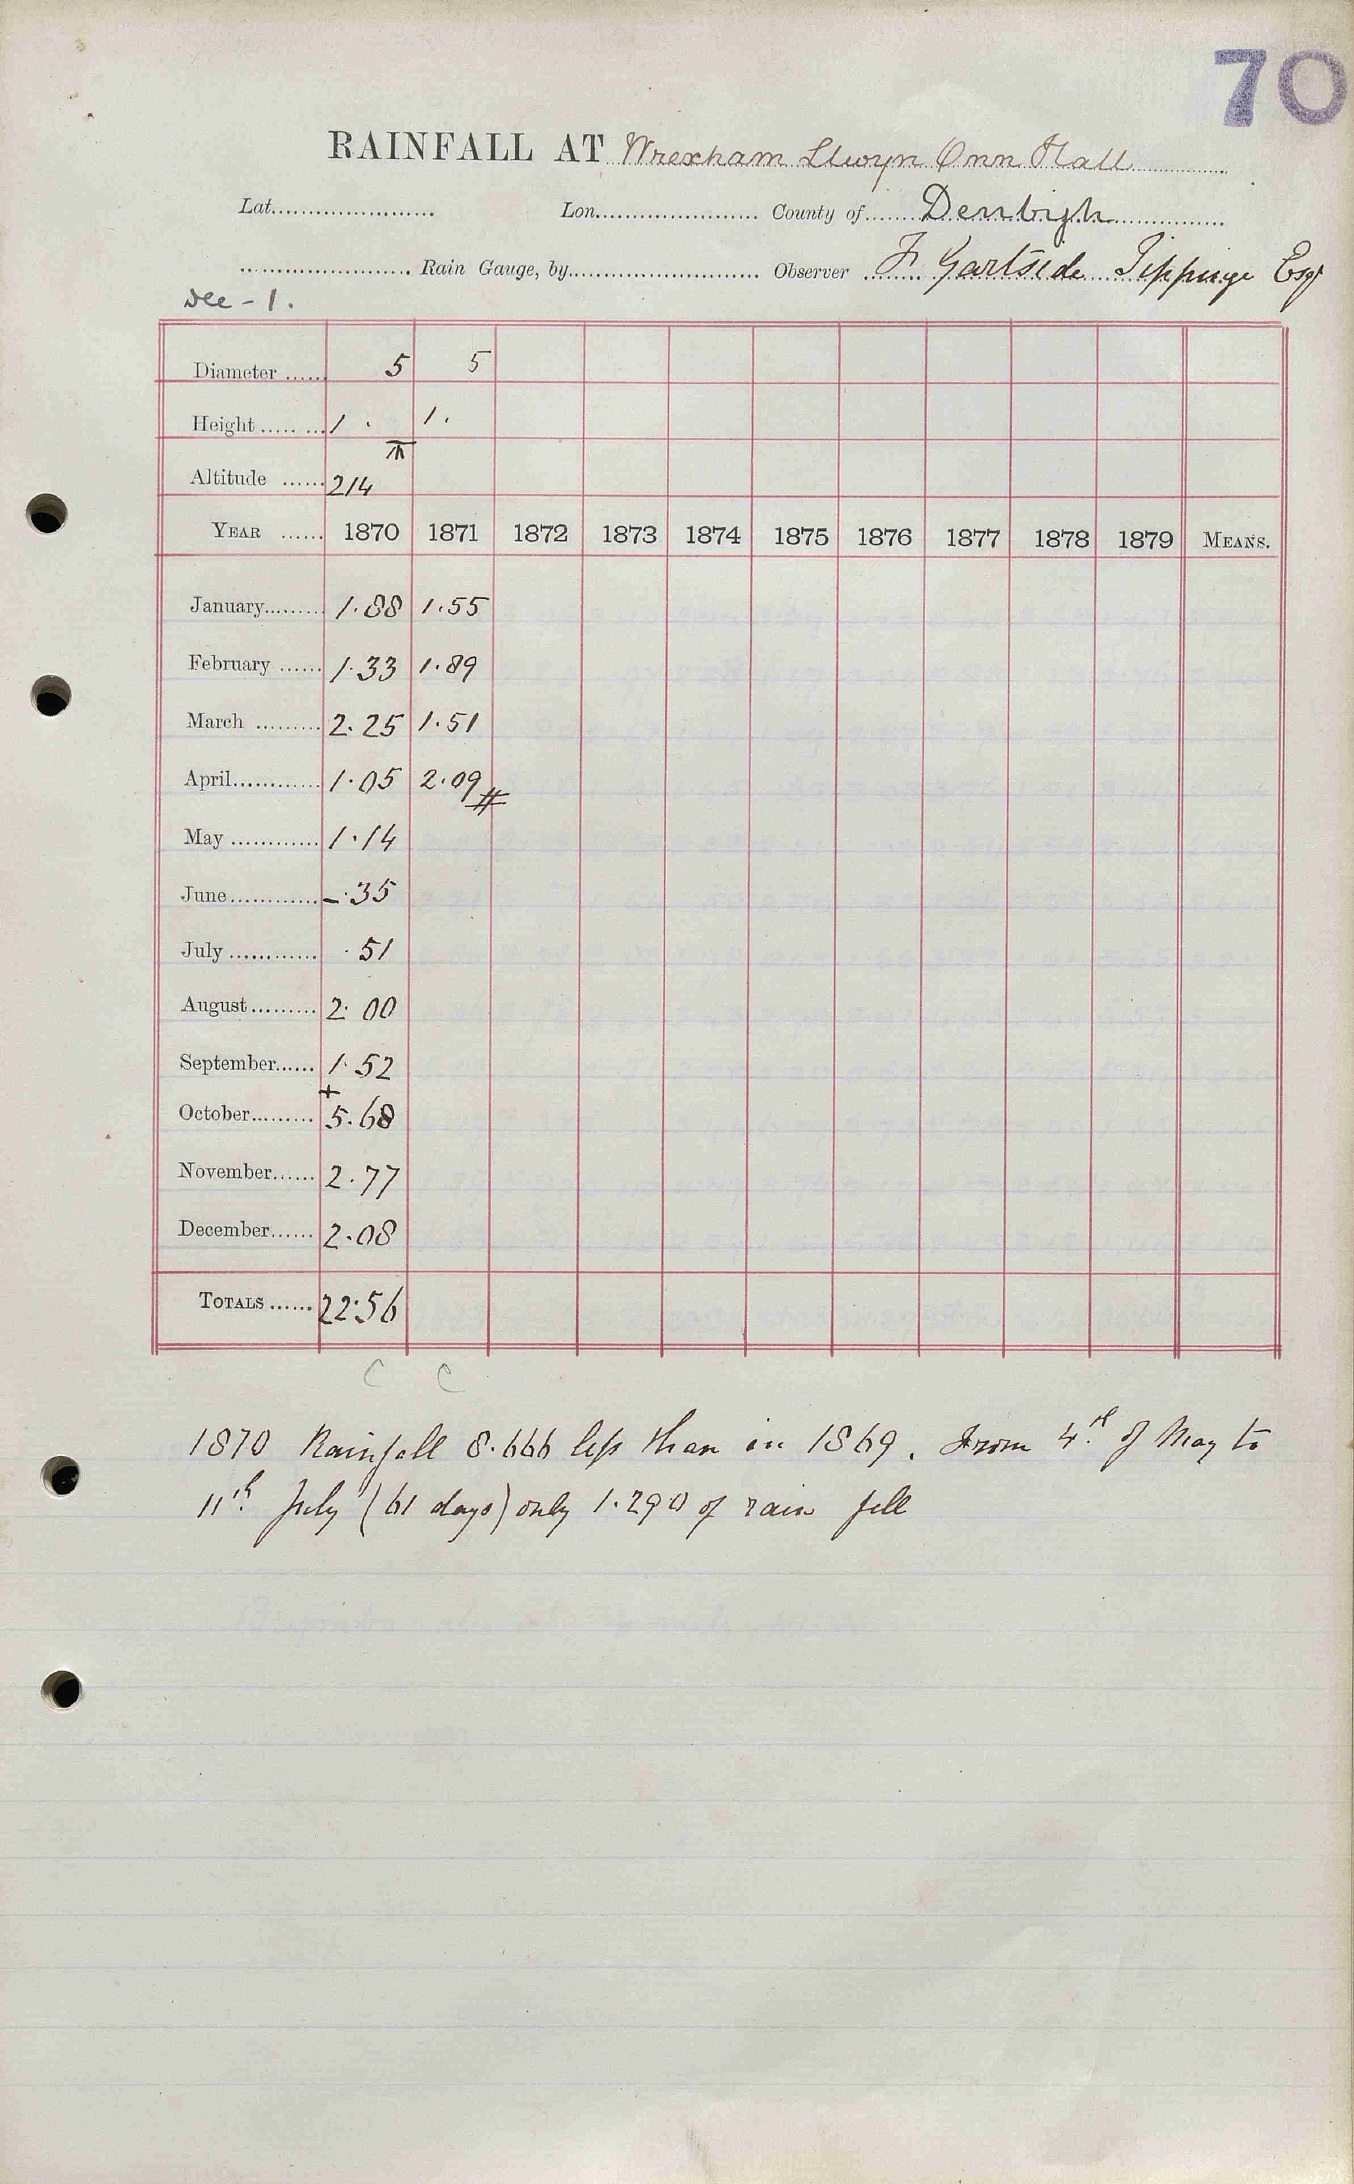 70
RAINFALL AT Wrexham Llwyn Onn Hall
Lat. Lon. County of Denbigh
Rain Gauge, by Observer F Gartside Tipping Esq
Dec - 1.
Diameter 5 5
Height 1 . 1.
Altitude 214
YEAR 1870 1871 1872 1873 1874 1875 1876 1877 1878 1879 MEANS.
January 1.88 1.55
February 1.33 1.89
March 2.25 1.51
April 1.05 2.09
May 1.14
June -.35
July .51
August 2.00
September 1.52
October 5.68
November 2.77
December 2.08
TOTALS 22.56
C C
1870 Rainfall 8.666 less than in 1869. From 4th of May to
11th July (61 days) only 1.290 of rain fell